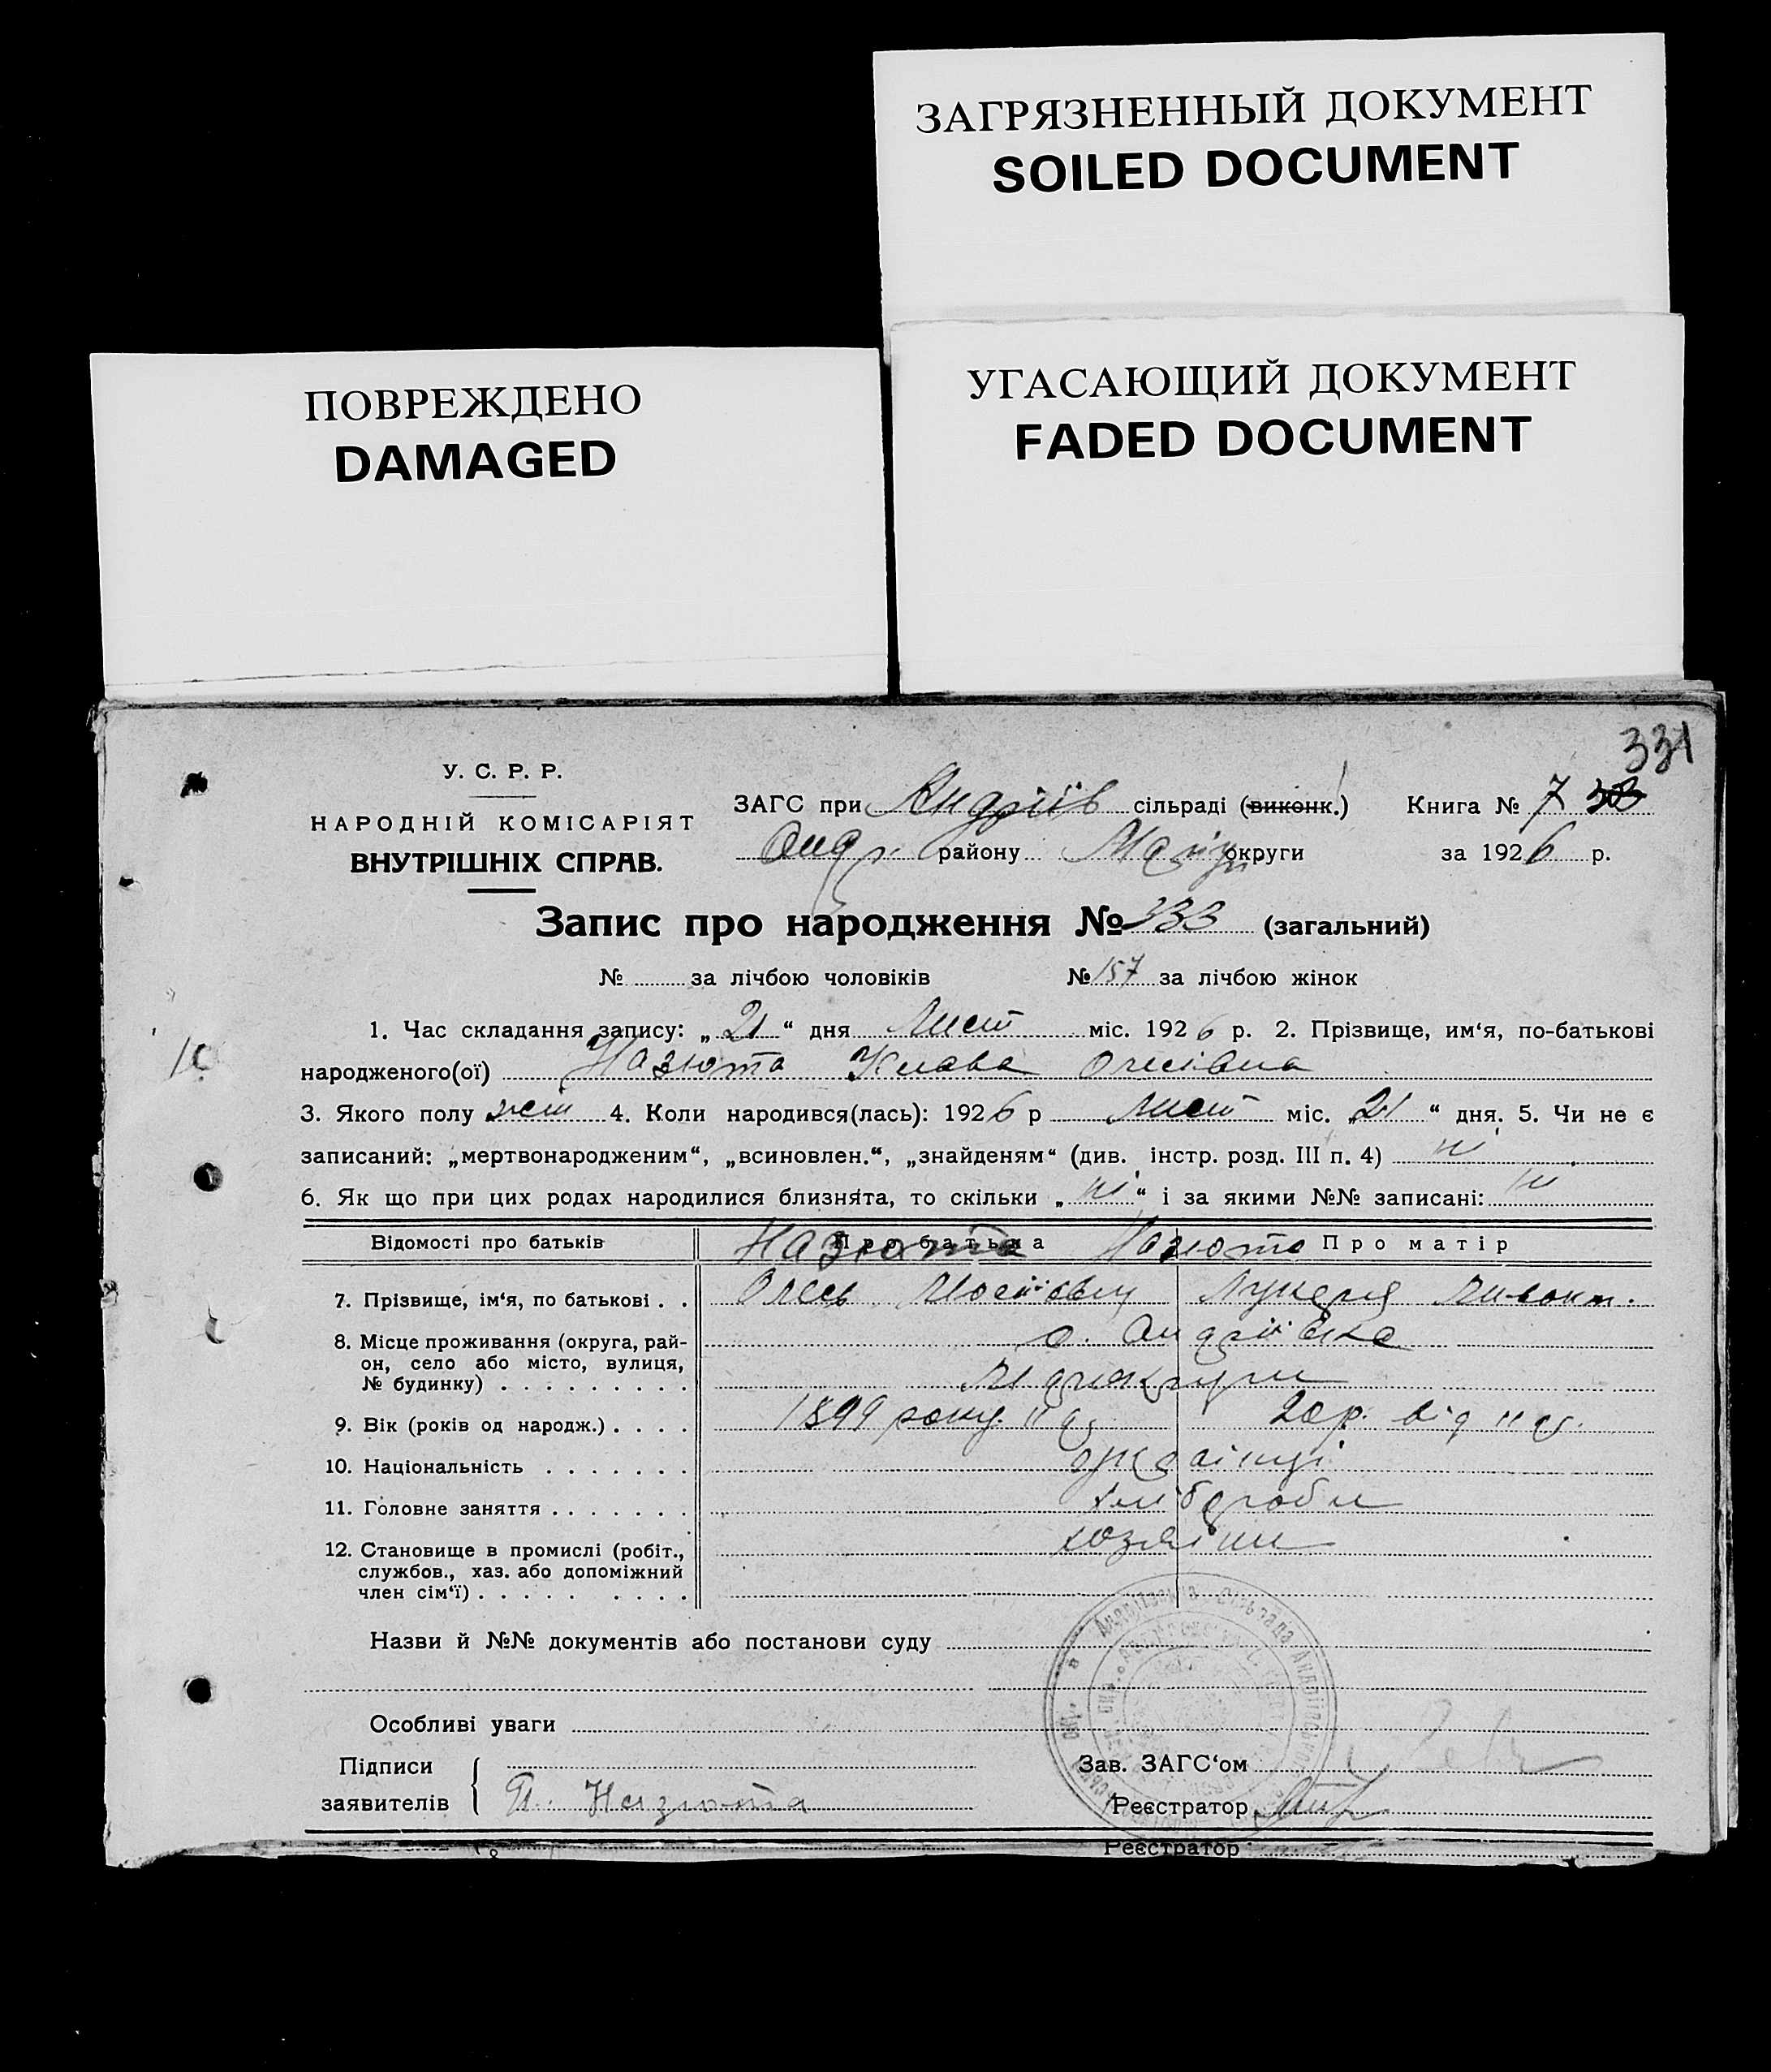 ЗАГРЯЗНЕННЫЙ ДОКУМЕНТ
SOILED DOCUMENT
ПОВРЕЖДЕНО
DAMAGED
УГАСАЮЩИЙ ДОКУМЕНТ
FADED DOCUMENT
331
У. С. Р. Р.
НАРОДНІЙ КОМІСАРІЯТ
ВНУТРІШНІХ СПРАВ.
ЗАГС при Андріїв сільраді (виконк.) Книга № 7
Андр. району Маріуп округи за 1926 р.
Запис про народження № 333 (загальний)
№ за лічбою чоловіків № 157 за лічбою жінок
1. Час складання запису: „ 21 “ дня Лист міс. 1926 р. 2. Прізвище, им‘я, по-батькові
народженого(ої) Назюта Клава Олесівна
3. Якого полу жін 4. Коли народився(лась): 1926 р Лист міс. „21 “ дня. 5. Чи не є
записаний: „мертвонародженим“, „всиновлен.“, „знайденям“ (див. інстр. розд. III п. 4) ні
6. Як що при цих родах народилися близнята, то скільки „ ні “ і за якими №№ записані: ні
Відомості про батьків Про батька Назюта Назюта Про матір
7. Прізвище, ім‘я, по батькові . . Олесь Мосійович Лукеря
8. Місце проживання (округа, рай- с. Андріївка
он, село або місто, вулиця,
№ будинку) . . . . . . . . .
9. Вік (років од народж.) . . . . 1899 року 20 р. від
10. Національність . . . . . . . українці
11. Головне заняття . . . . . . . хлібороби
12. Становище в промислі (робіт., хозяїни
службов., хаз. або допоміжний
член сім‘ї) . . . . . . . . .
Назви й №№ документів або постанови суду
Особливі уваги
Підписи
заявителів П. Назюта
Зав. ЗАГС‘ом
Реєстратор
Реєстратор